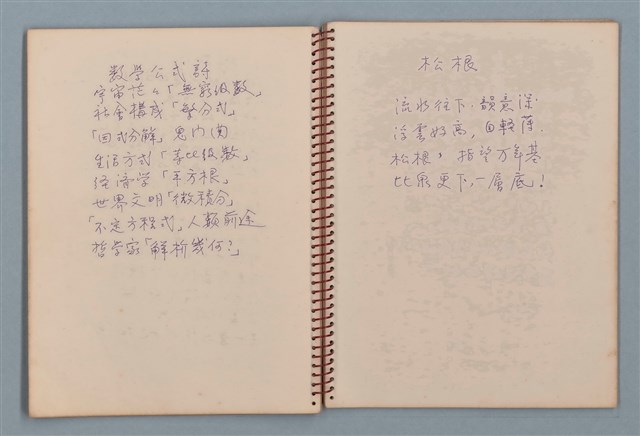 数學公式詩
宇宙茫々「無窮级數」
社會構成「繁分式」
「因式分解」鬼门関
生活方式「等比级數」
经濟学「平方根」
世界文明「微積分」
「不定方程式」人類前途
哲学家「解析幾何？」
松根
流水往下，韻意深
浮雲好高，自輕薄.
松根，指望万年基
比泉更下，一層底！